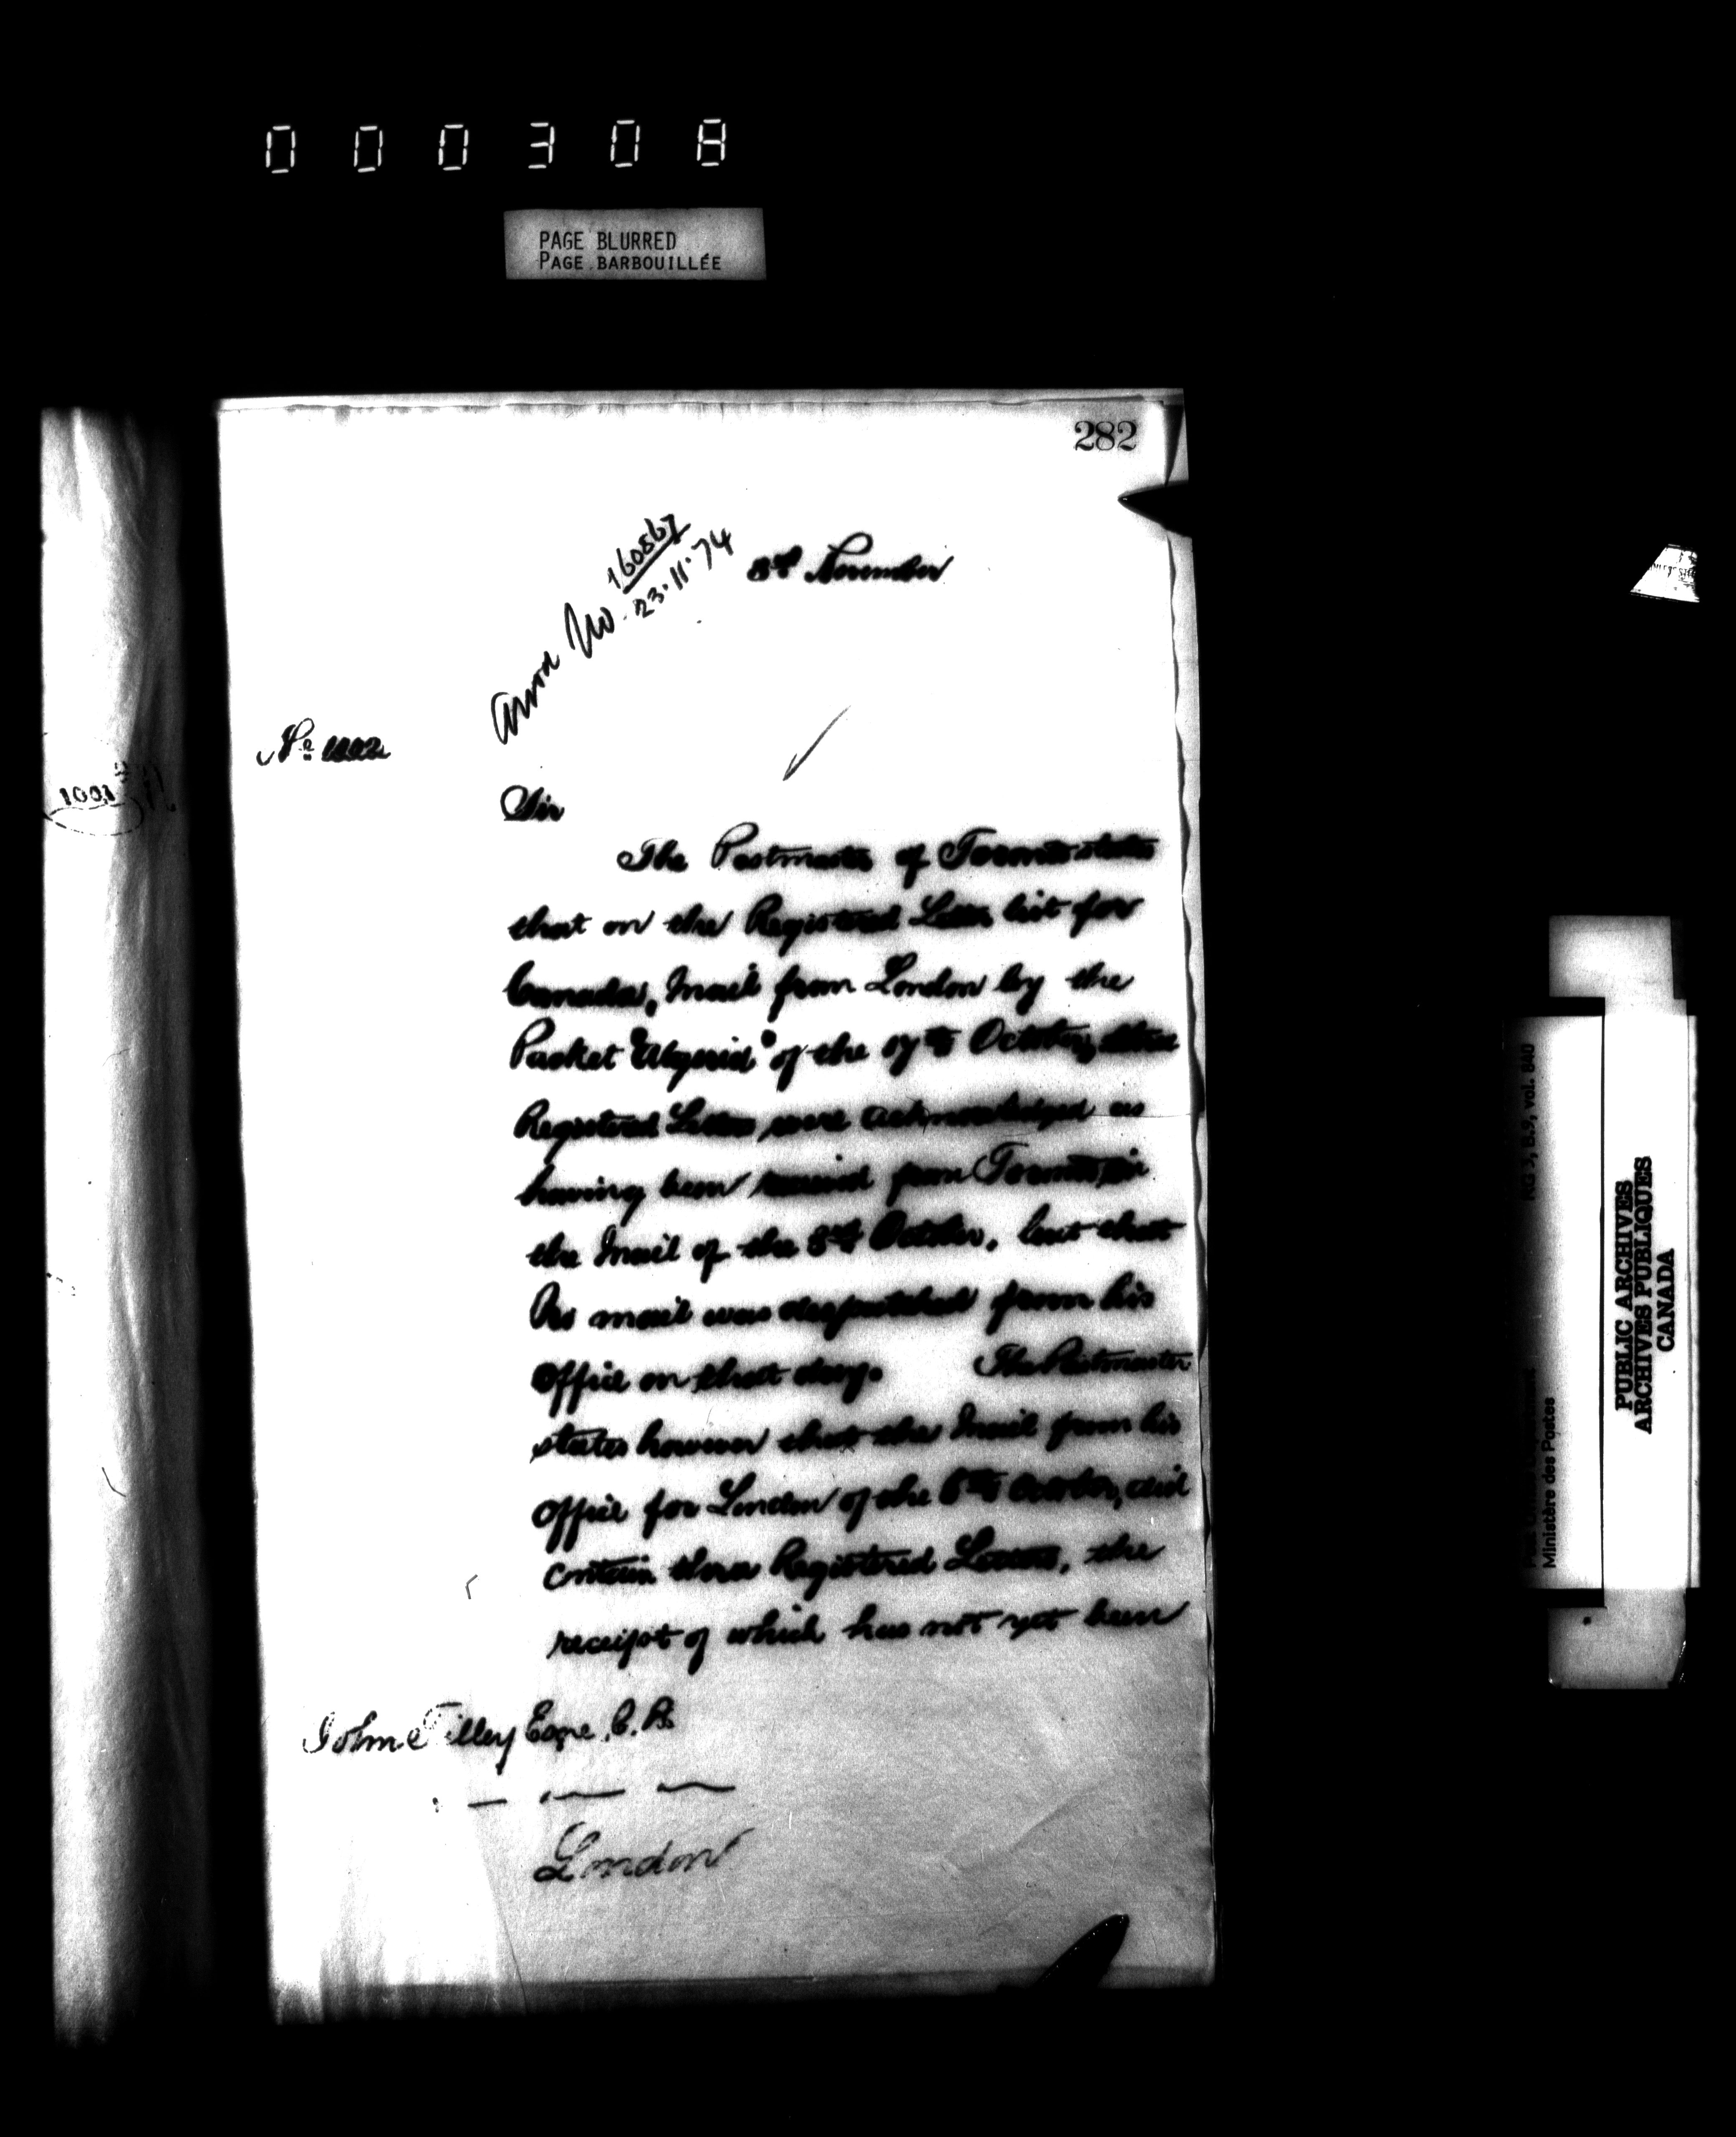 000308
PAGE BLURRED
PAGE BARBOUILLÉE
282
160567
23.11.74
November
No 1002
1001
Sir
The Postmaster of Toronto states
that on the Registered Letter list for
Canada, Mail from London by the
Packet of the 17th October, three
Registered Letters were acknowledged as
having been received from Toronto in
the Mail of the 8th October, but that
No mail was despatched from his
Office on that day. The Postmaster
states however that the Mail from his
Office for London of the 6th October, did
contain three Registered Letters, the
receipt of which has not yet been
John Tilley Esqre, C.B.
London
RG 3, B.9, vol. 840
Ministère des Postes
PUBLIC ARCHIVES
ARCHIVES PUBLIQUES
CANADA